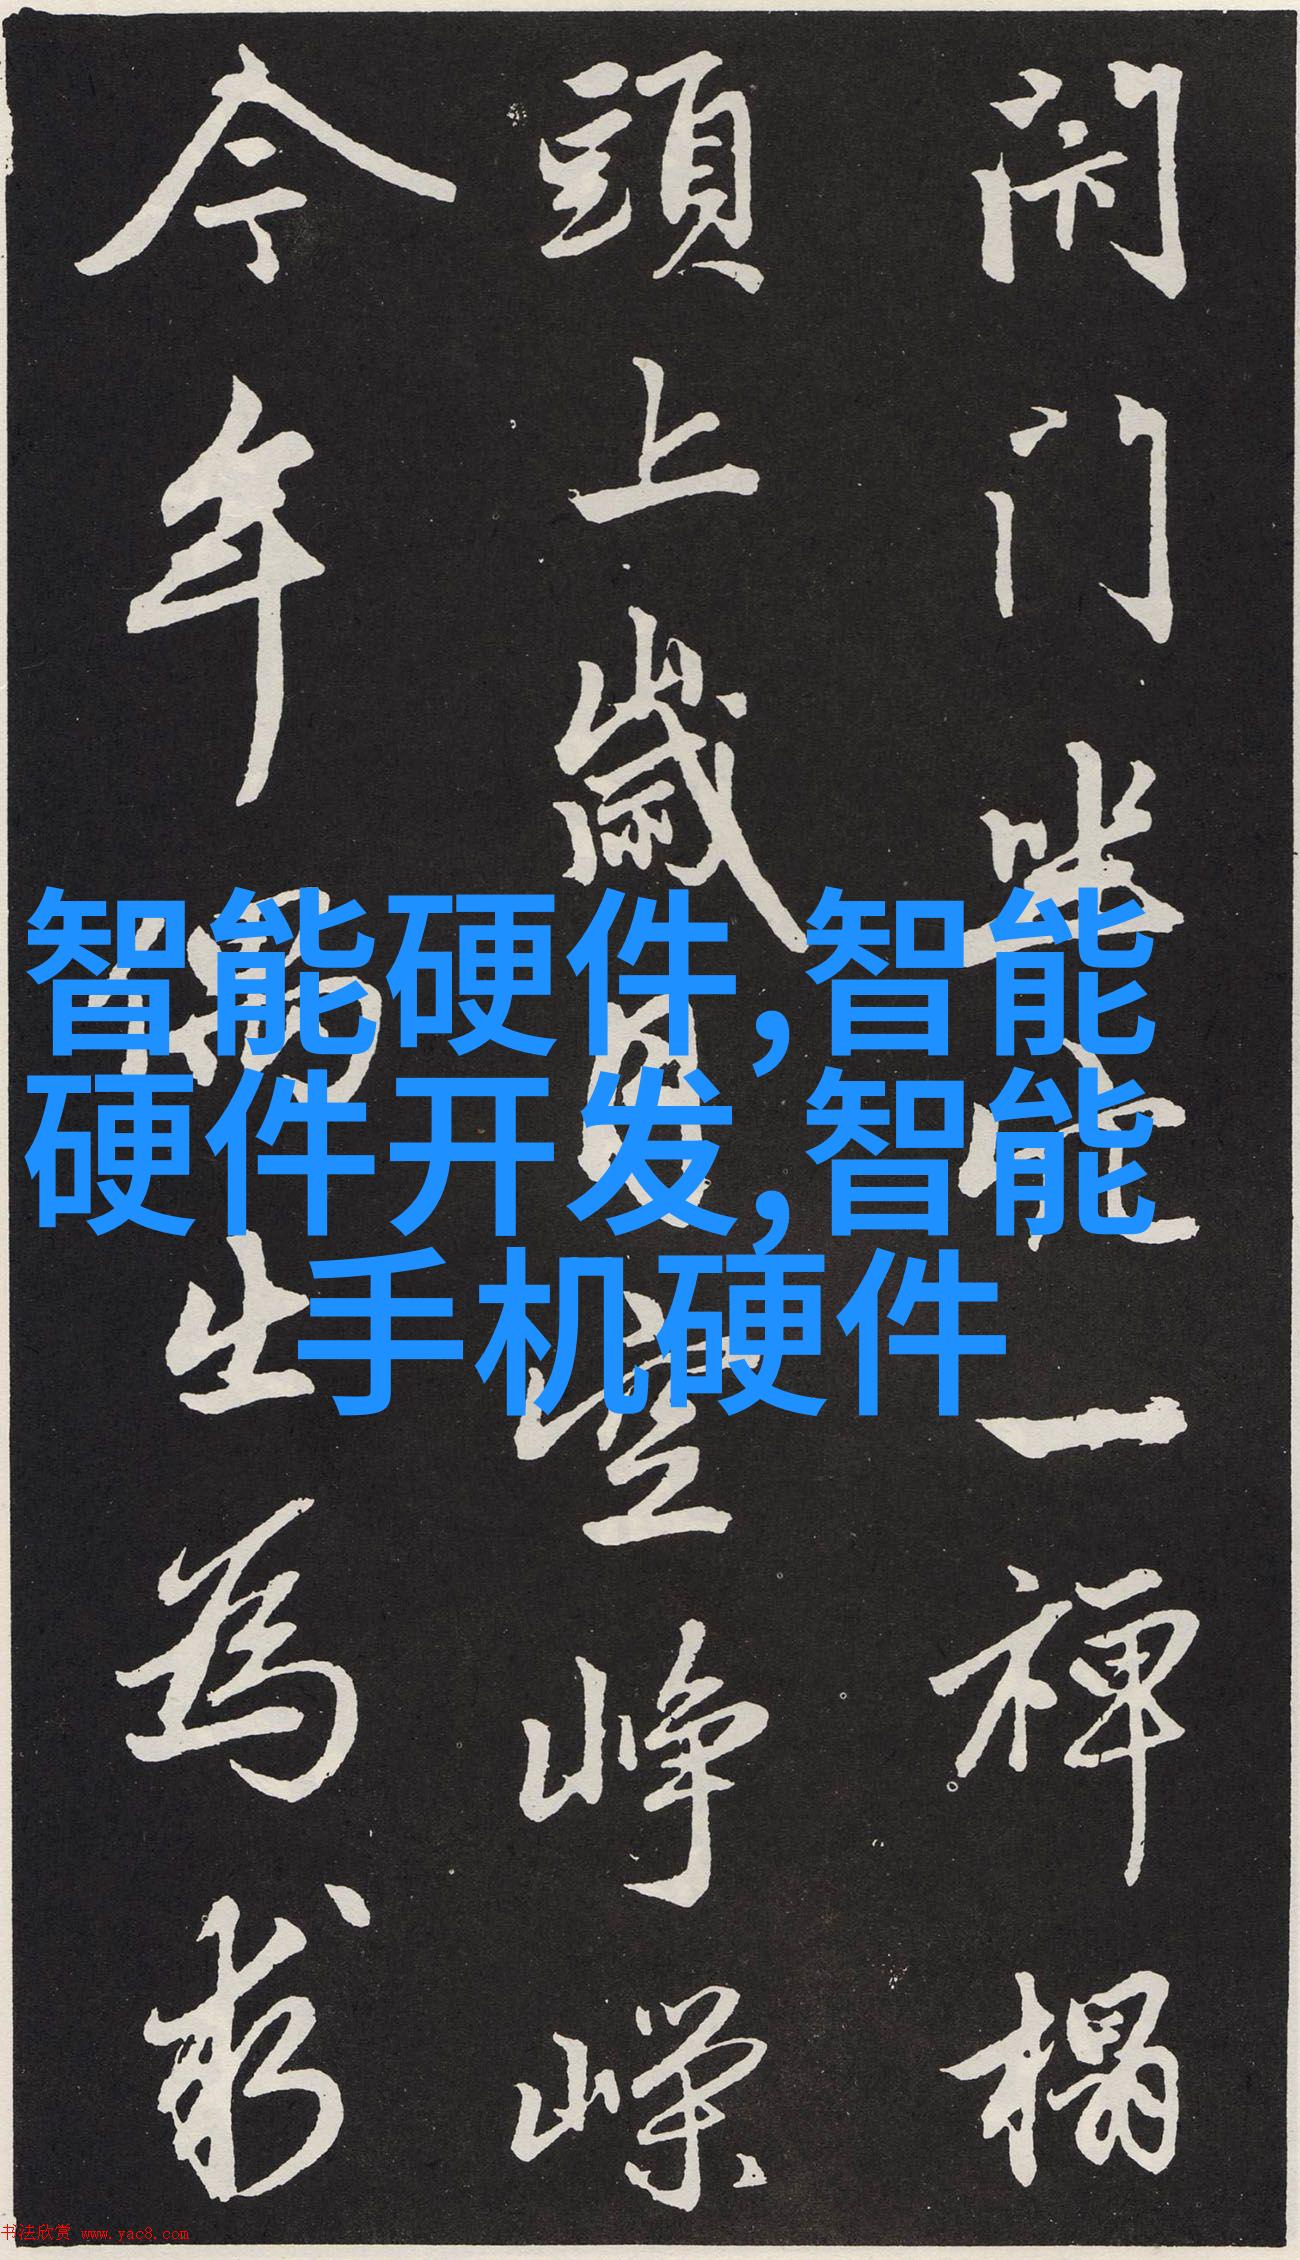 閇门坐穴一禅榻
頭上歲月空崢嶸
今年偶出為求
智能硬件,智能
硬件开发,智能
手机硬件
书法欣赏 www.yac8.com